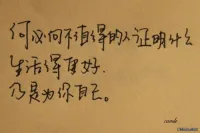 何必向不值得的人证明什么
生活得更好.
乃是为你自己.